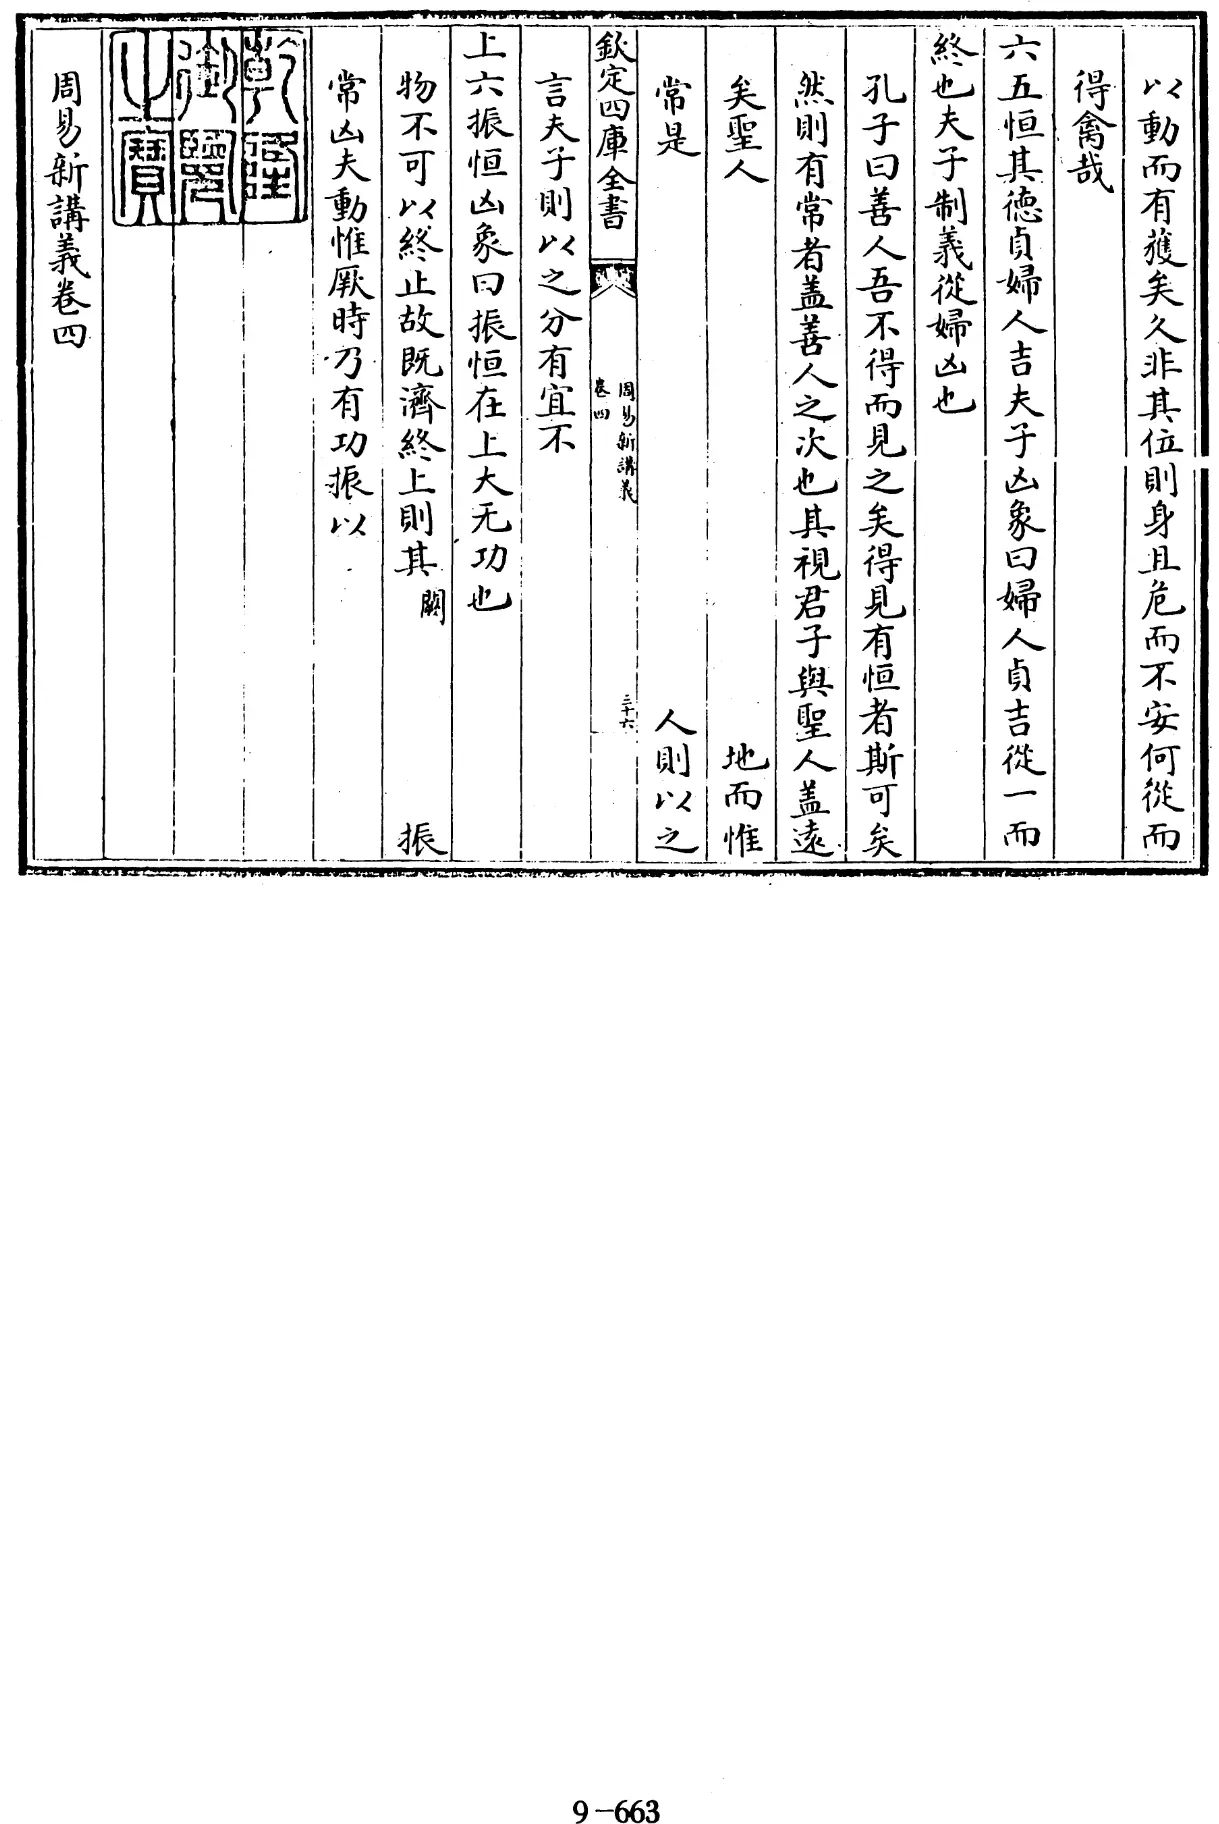 以動而有獲矣久非其位則身且危而不安何從而
得禽哉
六五恒其德貞婦人吉夫子凶象曰婦人貞吉從一而
終也夫子制義從婦凶也
孔子曰善人吾不得而見之矣得見有恒者斯可矣
然則有常者盖善人之次也其視君子與聖人盖遠
矣聖人 地而惟
常是 人則以之
欽定四庫全書
周易新講義
卷四
三十六
言夫子則以之分有宜不
上六振恒凶象曰振恒在上大无功也
物不可以終止故既濟終上則其闕 振
常凶夫動惟厥時乃有功振以
乾隆
御覽
之寳
周易新講義卷四
9-663